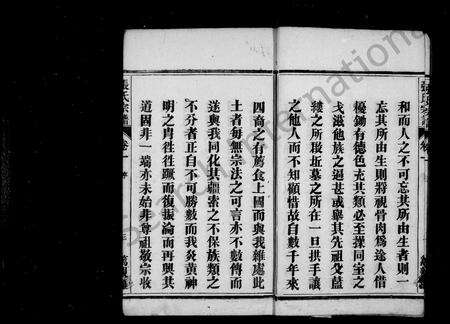 和而人之不可忘其所由生者則一
忘其所由生則將視骨肉為途人借
耰鋤有德色充其類必至操同室之
戈滋他族之逼甚或舉其先祖父藍
縷之所墾坵墓之所在一旦拱手讓
之他人而不知顧惜故自數千年來
四裔之有薦食上國而與我維處此
土者每無宗法之可言亦不數傳而
遂與我同化其疆索之不保族類之
不分者正自不可勝數而我炎黃神
明之冑往往蹶而復振淪而再興其
道固非一端亦未始非尊祖敬宗收
張氏宗譜
卷一
序